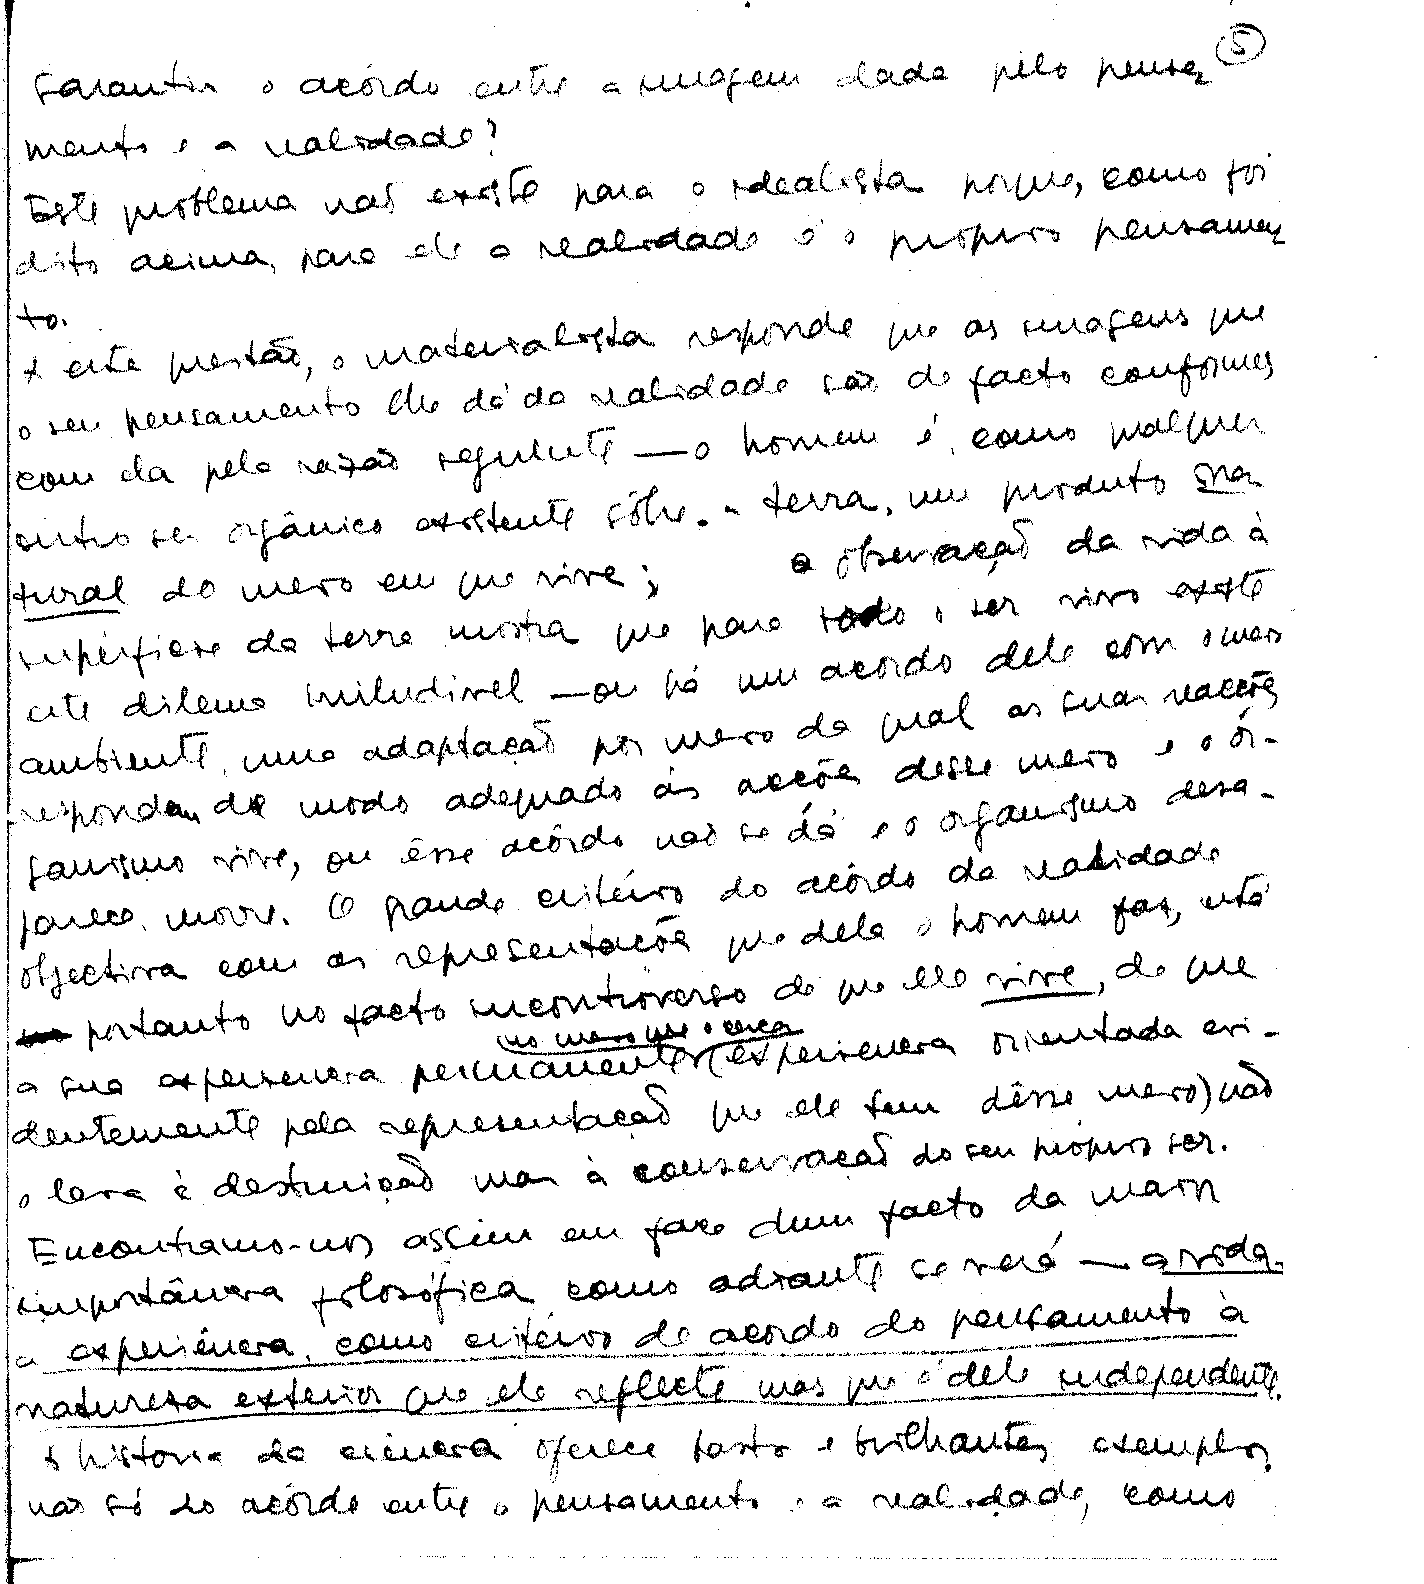 5
Garantir o acôrdo entre a imagem dada pelo pensa
mento e a realidade?
Este problema não existe para o idealista porque, como foi
dito acima, para ele a realidade é o próprio pensamen
to.
A esta questão, o materialista responde que as imagens que
o seu pensamento lhe dá da realidade são de facto conformes
com ela pela razão seguinte — o homem é, como qualquer
outro ser orgânico existente sôbre a terra, um produto na
tural do meio em que vive; a observação da vida à
superfície da terra mostra que para todo o ser vivo existe
este dilema iniludivel — ou há um acordo dele com o meio
ambiente, uma adaptação por meio da qual as suas reacções
respondem de modo adequado às acções desse meio e o or-
ganismo vive, ou êsse acôrdo não se dá e o organismo desa-
parece, morre. O grande critério do acôrdo da realidade
objectiva com as representações que dela o homem faz, está
portanto no facto incontroverso de que ele vive, de que
no meio que o cerca
a sua experiencia permanente (experiencia orientada evi-
dentemente pela representação que ele tem dêsse meio) não
o leva à destruição mas à conservação do seu próprio ser.
Encontramo-nos assim em face dum facto da maior
importância filosófica como adiante se verá — a vida,
a experiência, como critério de acordo do pensamento à
natureza exterior que ele reflecte mas que é dele independente.
A história da ciencia oferece fartos e brilhantes exemplos,
não só do acôrdo entre o pensamento e a realidade, como